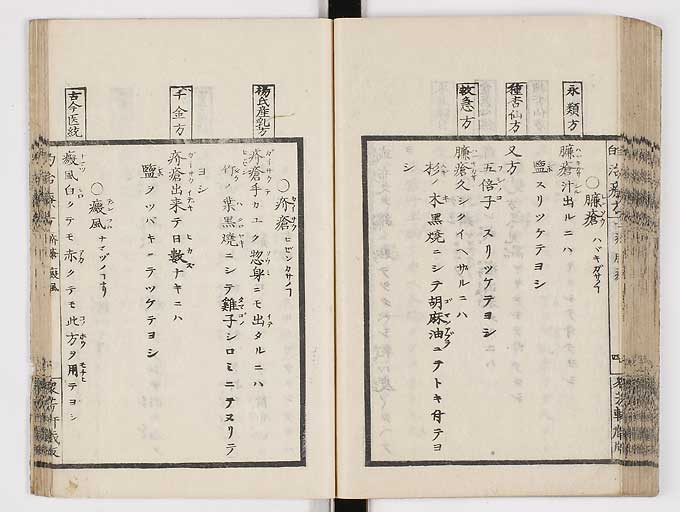 ○臁瘡 ハバキガサノ
永類方
臁瘡汁出ルニハ
塩スリツケテヨシ
種杏仙方
又方
五倍子スリツケテヨシ
救急方
臁瘡久シクイヘザルニハ
杉ノ木黒焼ニシテ胡麻油ニテトキ付テヨ
シ
○疥瘡 ヒゼンカサノ
楊氏産乳方
疥瘡手カユク惣身ニモ出タルニハ
竹ノ葉黒焼ニシテ雞子シロミニテヌリテ
ヨシ
千金方
疥瘡出来テ日数ナキニハ
塩ヲツバキニテツケテヨシ
○癜風 ナマヅノ
古今医統
癜風白クテモ赤クテモ此方ヲ用テヨシ